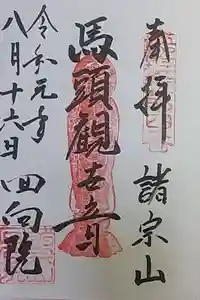 奉拝
諸宗山
馬頭観世音
令和元年
八月十六日
回向院